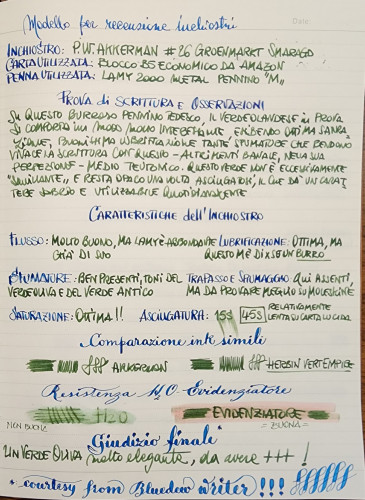 Modello per recensione inchiostri
Date:
INCHIOSTRO: P.W. AKKERMAN #26 GROENMARKT SMARAGD
CARTA UTILIZZATA: BLOCCO B5 ECONOMICO DA AMAZON
PENNA UTILIZZATA: LAMY 2000 METAL PENNINO "M"
PROVA DI SCRITTURA E OSSERVAZIONI
SU QUESTO BURROSO PENNINO TEDESCO, IL VERDE OLANDESE IN PROVA
SI COMPORTA IN MODO MOLTO INTERESSANTE, ESIBENDO OTTIMA SATURA-
ZIONE, BUONISSIMA LUBRIFICAZIONE E TANTE SFUMATURE CHE RENDONO
VIVACE LA SCRITTURA CON QUESTO - ALTRIMENTI BANALE, NELLA SUA
PERFEZIONE - MEDIO TEUTONICO. QUESTO VERDE NON È ECCESSIVAMENTE
"BRILLANTE", E RESTA OPACO UNA VOLTA ASCIUGATOSI, IL CHE DA' UN CARAT
TERE SOBRIO E UTILIZZABILE QUOTIDIANAMENTE
CARATTERISTICHE dell'INCHIOSTRO
FLUSSO: MOLTO BUONO, MA LAMY È ABBONDANTE LUBRIFICAZIONE: OTTIMA, MA
GIA' DI SUO QUESTO M È DI SUO UN BURRO
SFUMATURE: BEN PRESENTI, TONI DEL TRAPASSO E SPIUMAGGIO: QUI ASSENTI,
VERDE OLIVA E DEL VERDE ANTICO MA DA PROVARE MEGLIO SU MOLESKINE
SATURAZIONE: OTTIMA!! ASCIUGATURA: 15S 45S RELATIVAMENTE
LENTA SU CARTA LUCIDA
Comparazione inks simili
AKKERMAN HERBIN VERT EMPIRE
Resistenza H2O - Evidenziatore
H2O EVIDENZIATORE
NON BUONA = BUONA =
Giudizio finale
UN VERDE OLIVA molto elegante, da avere +++ !
* courtesy from Bluedew writer!!!